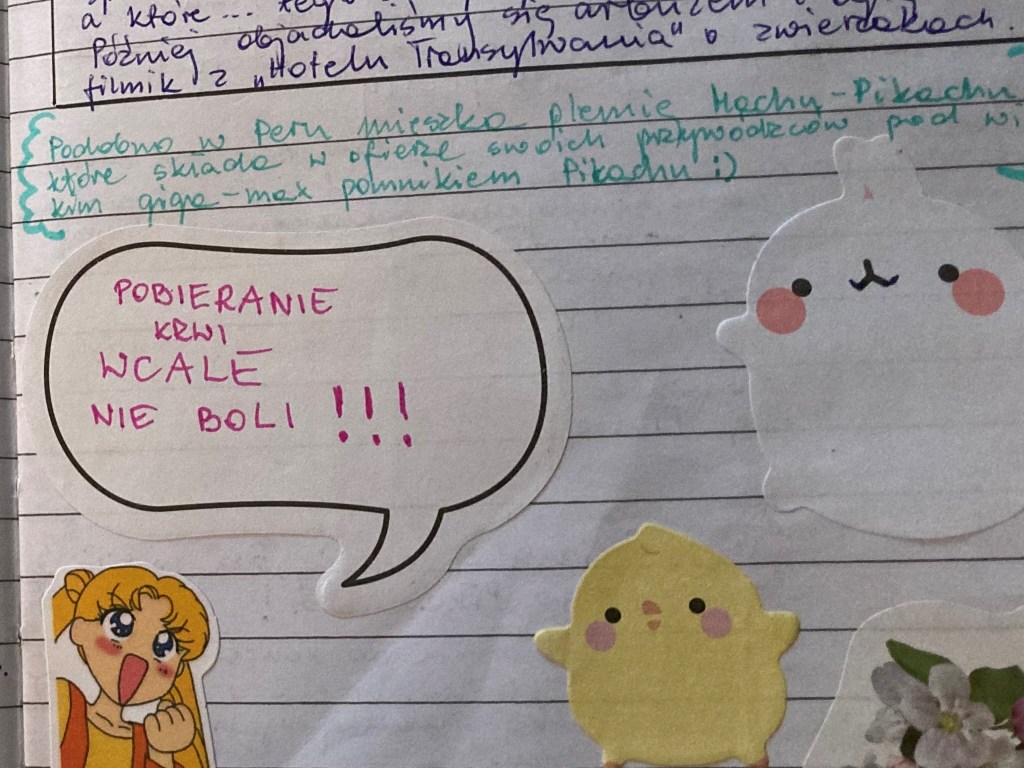 a które...
Później objadaliśmy się
filmik z „Hotelu Transylwania" o zwierzakach.
Podobno w Peru mieszka plemię Machu-Pikachu
które składa w ofierze swoich przywódców pod wi
kim giga-max pomnikiem Pikachu :)
POBIERANIE
KRWI
WCALE
NIE BOLI !!!